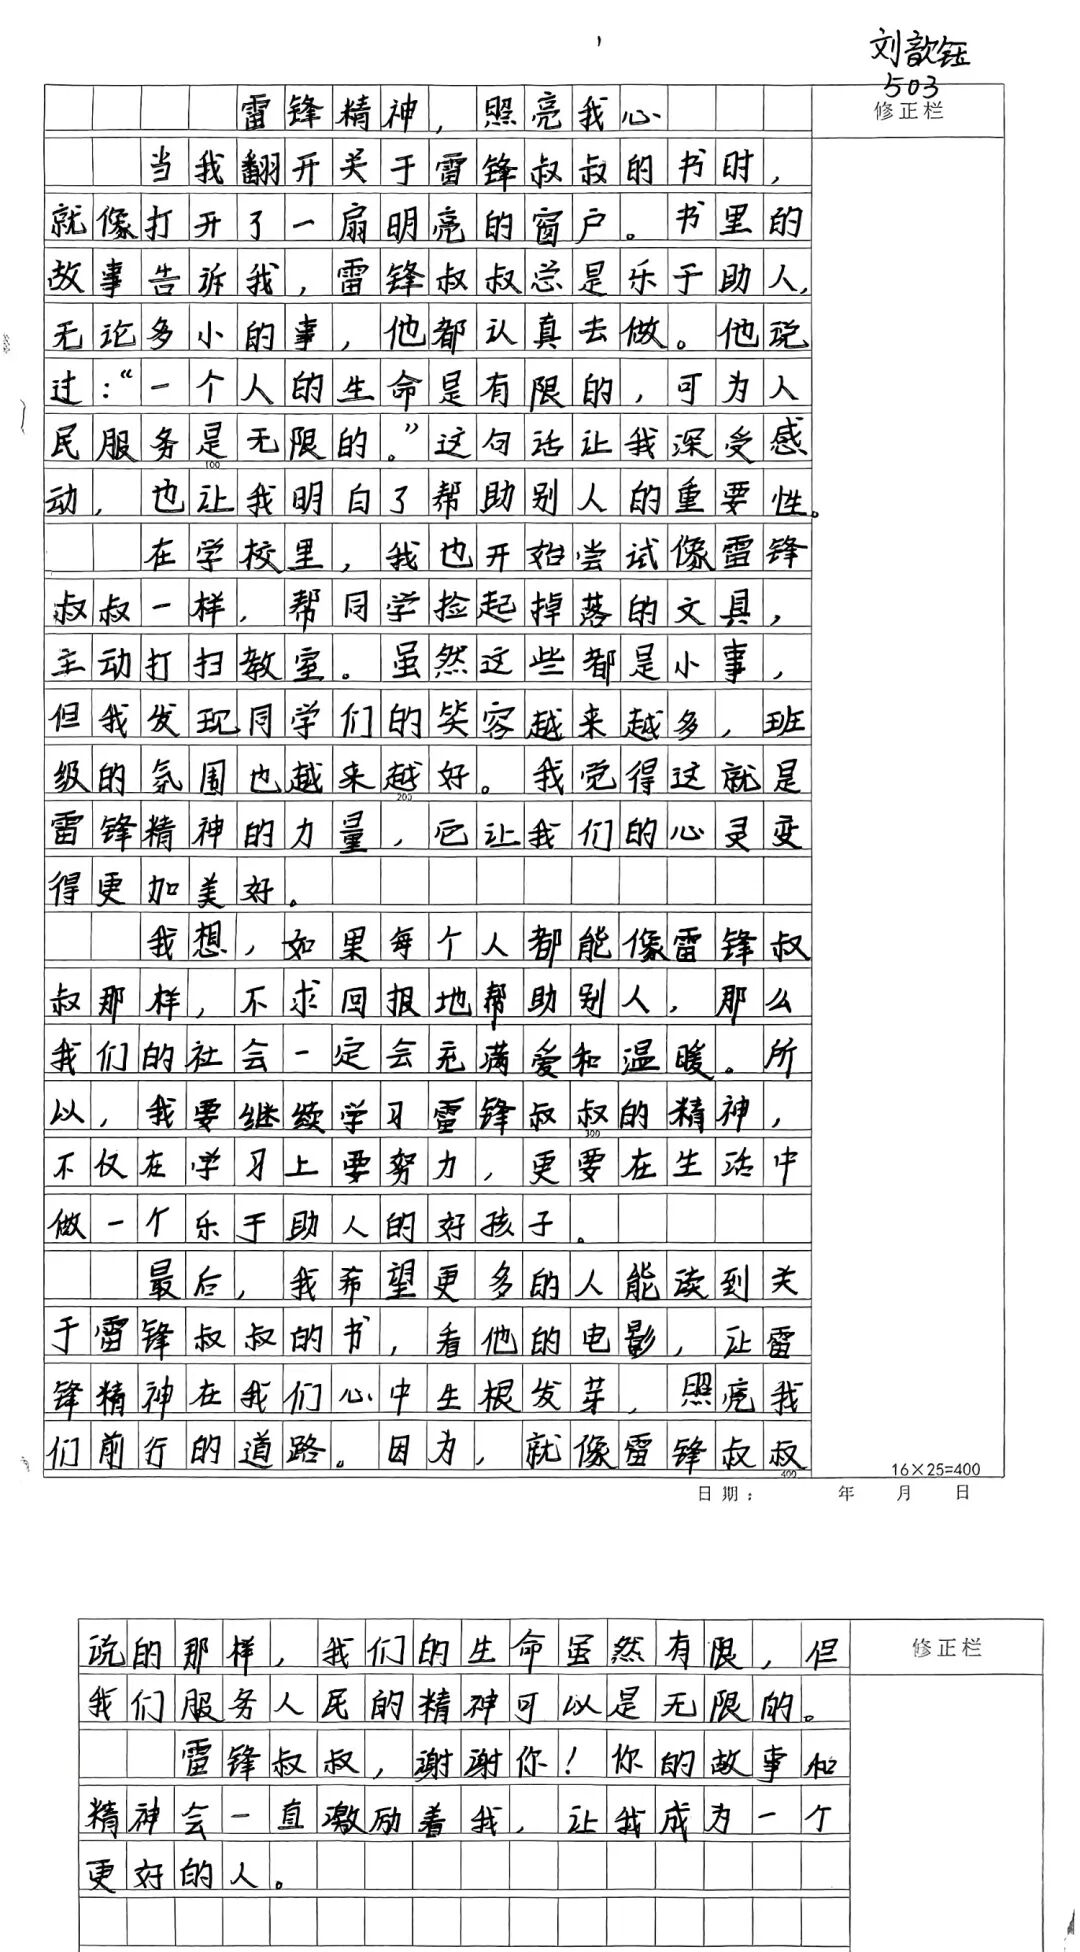 刘歆钰
503
修正栏
雷锋精神，照亮我心
当我翻开关于雷锋叔叔的书时，
就像打开了一扇明亮的窗户。书里的
故事告诉我，雷锋叔叔总是乐于助人，
无论多小的事，他都认真去做。他说
过：“一个人的生命是有限的，可为人
民服务是无限的。”这句话让我深受感
100
动，也让我明白了帮助别人的重要性。
在学校里，我也开始尝试像雷锋
叔叔一样，帮同学捡起掉落的文具，
主动打扫教室。虽然这些都是小事，
但我发现同学们的笑容越来越多，班
级的氛围也越来越好。我觉得这就是
200
雷锋精神的力量，它让我们的心灵变
得更加美好。
我想，如果每个人都能像雷锋叔
叔那样，不求回报地帮助别人，那么
我们的社会一定会充满爱和温暖。所
以，我要继续学习雷锋叔叔的精神，
300
不仅在学习上要努力，更要在生活中
做一个乐于助人的好孩子。
最后，我希望更多的人能读到关
于雷锋叔叔的书，看他的电影，让雷
锋精神在我们心中生根发芽，照亮我
们前行的道路。因为，就像雷锋叔叔
400
16×25=400
日期： 年 月 日
修正栏
说的那样，我们的生命虽然有限，但
我们服务人民的精神可以是无限的。
雷锋叔叔，谢谢你！你的故事和
精神会一直激励着我，让我成为一个
更好的人。